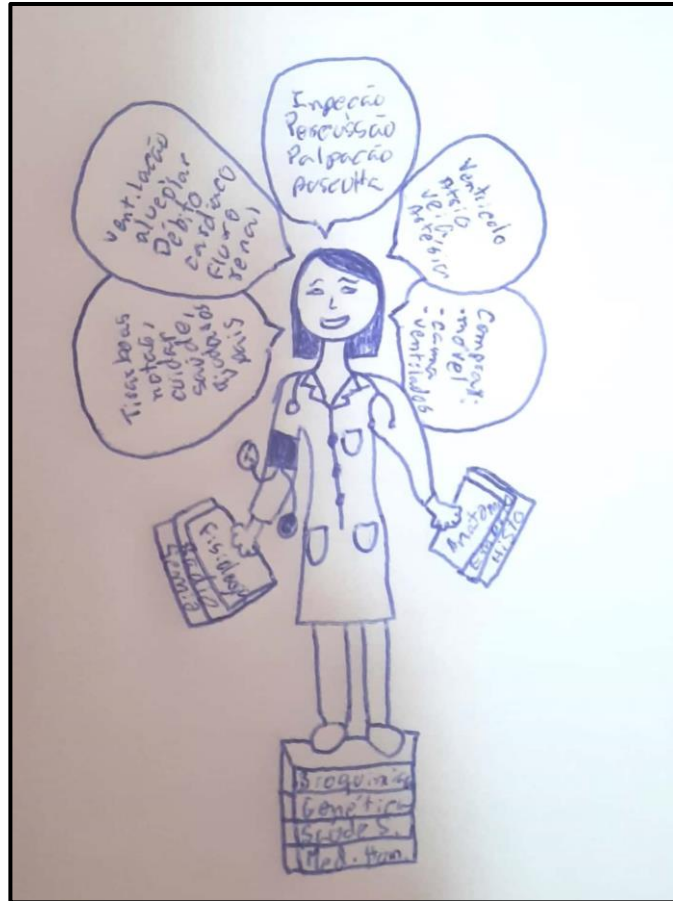 Inpeção
Percussão
Palpação
Ausculta
Ventilação
alveolar
Débito
cardíaco
Fluxo
renal
Ventrículo
Atrio
veia
Artéria
Tirar boas
notas,
cuidar
saúde,
pais
Comprar:
-móvel
-cama
-ventilador
Fisiolog
Radio
Semio
Anatom
Histo
Bioquímica
Genética
Saúde S.
Med. Hum.